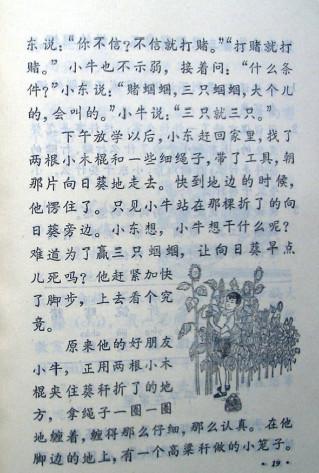 东说：“你不信？不信就打赌。”“打赌就打
赌。”小牛也不示弱，接着问：“什么条
件？”小东说：“赌蝈蝈，三只蝈蝈，大个儿
的，会叫的。”小牛说：“三只就三只。”
下午放学以后，小东赶回家里，找了
两根小木棍和一些细绳子，带了工具，朝
那片向日葵地走去。快到地边的时候，
他愣住了。只见小牛站在那棵折了的向
日葵旁边。小东想，小牛想干什么呢？
难道为了赢三只蝈蝈，让向日葵早点
儿死吗？他赶紧加快
了脚步，上去看个究
竟。
原来他的好朋友
小牛，正用两根小木
棍夹住葵秆折了的地
方，拿绳子一圈一圈
地缠着，缠得那么仔细，那么认真。在他
脚边的地上，有一个高粱秆做的小笼子。
· 19 ·